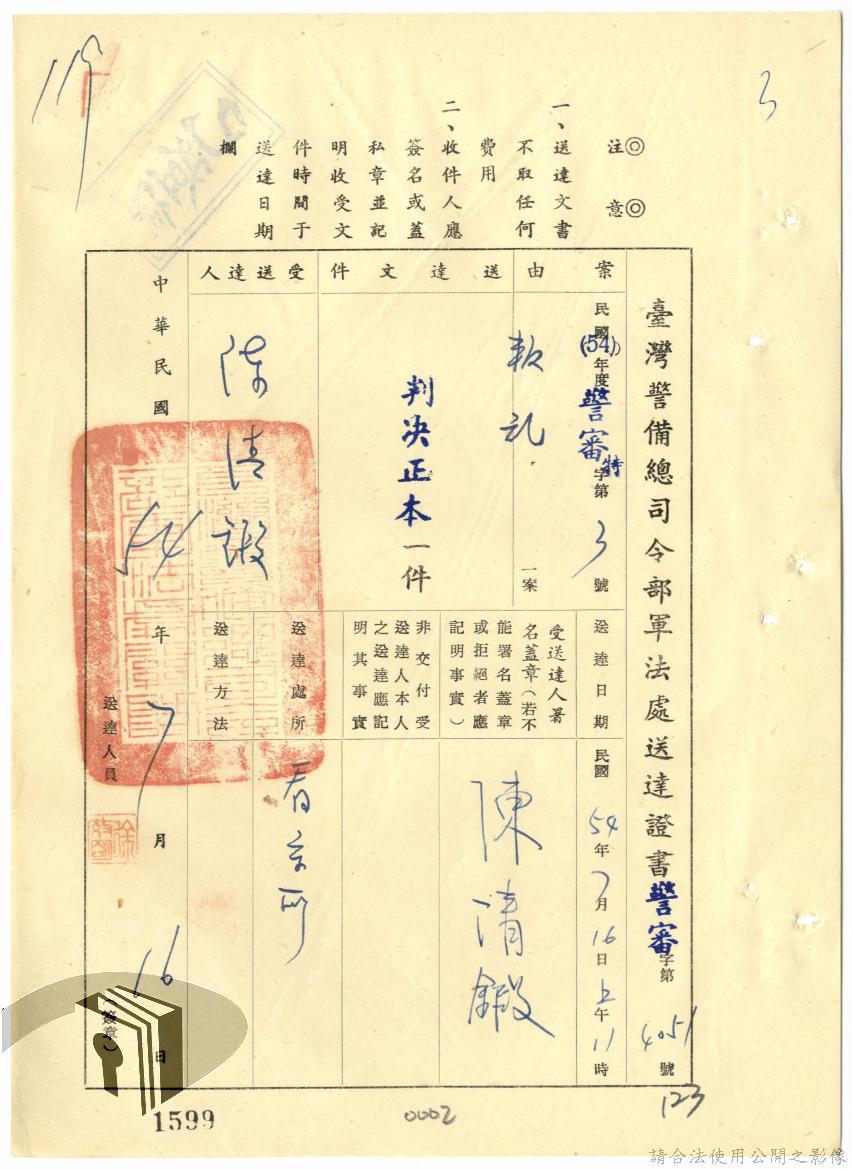 119
3
注意
一、送達文書
不取任何
費用
二、收件人應
簽名或蓋
私章並記
明收受文
件時間于
送達日期
欄
臺灣警備總司令部軍法處送達證書警審字第4051號
案由
民國(54)年度警審特字第3號
叛乱
一案
送達文件
判決正本一件
受送達人
陳清鍛
送達日期
民國54年7月16日上午11時
受送達人署
名蓋章(若不
能署名蓋章
或拒絕者應
記明事實)
陳清鍛
非交付受
送達人本人
之送達應記
明其事實
送達處所
看守所
送達方法
中華民國54年7月16日
送達人員
(簽章)
1599
0002
123
請合法使用公開之影像